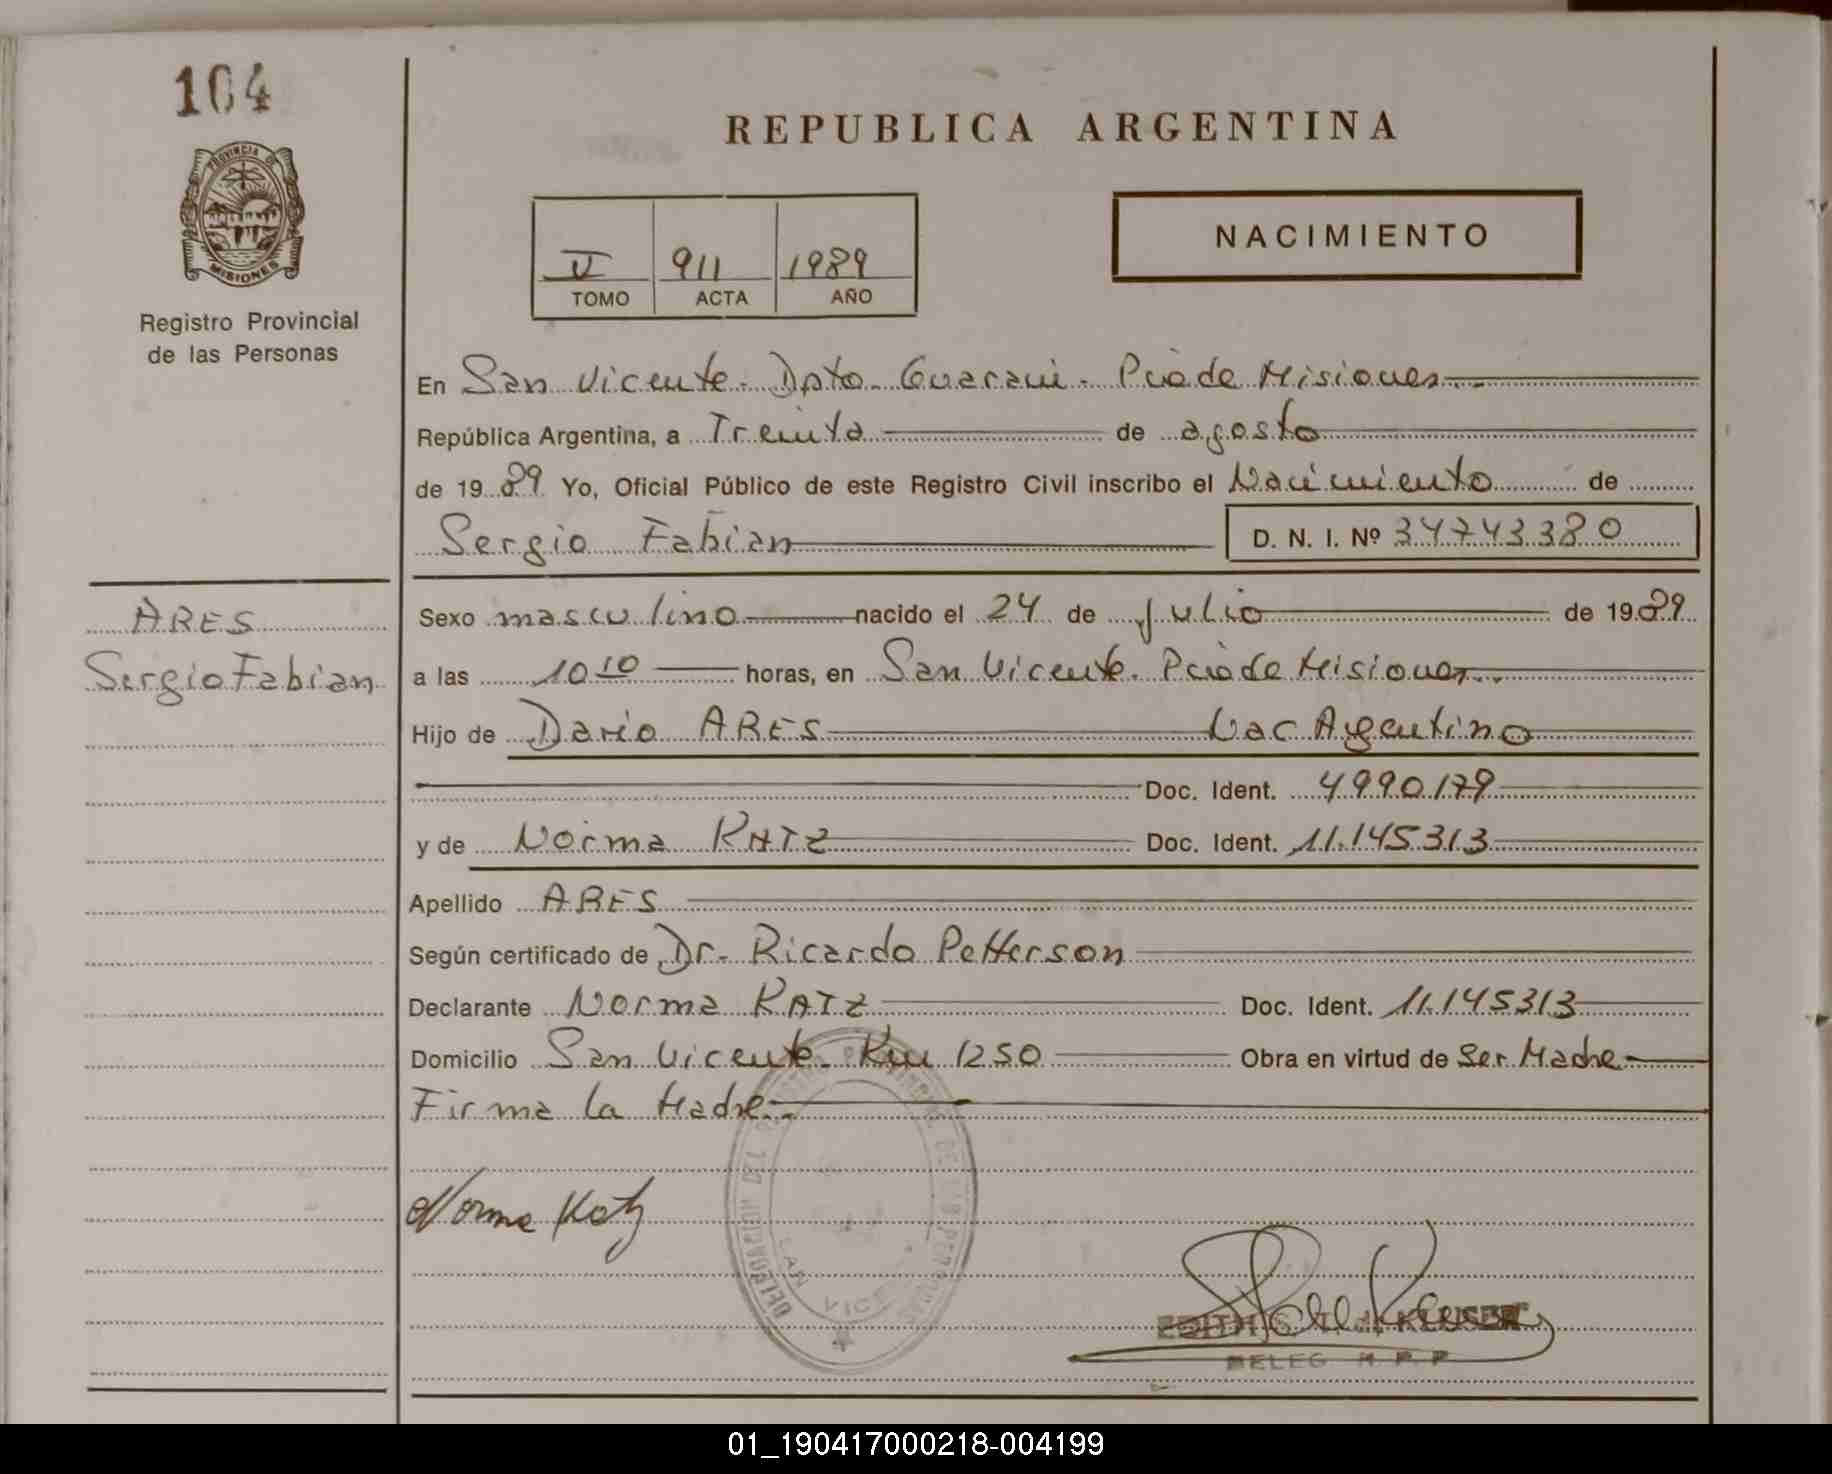 104
PROVINCIA DE
MISIONES
Registro Provincial
de las Personas
REPUBLICA ARGENTINA
V 911 1989
TOMO ACTA AÑO
NACIMIENTO
En San Vicente. Dpto. Guarani. Pcia de Misiones
República Argentina, a Treinta de agosto
de 1989 Yo, Oficial Público de este Registro Civil inscribo el Nacimiento de
Sergio Fabian D. N. I. Nº 34743380
ARES
Sergio Fabian
Sexo masculino nacido el 24 de Julio de 1989
a las 10 10 horas, en San Vicente. Pcia de Misiones
Hijo de Dario ARES Nac Argentino
Doc. Ident. 4990179
y de Norma KATZ Doc. Ident. 11.145313
Apellido ARES
Según certificado de Dr. Ricardo Petterson
Declarante Norma KATZ Doc. Ident. 11.145313
Domicilio San Vicente. Km 1250 Obra en virtud de Ser Madre
Firma la Madre
Norma Katz
DELEGACION DEL REGISTRO PROVINCIAL DE LAS PERSONAS
SAN VICENTE
EDITH
DELEG R.P.P
01_190417000218-004199